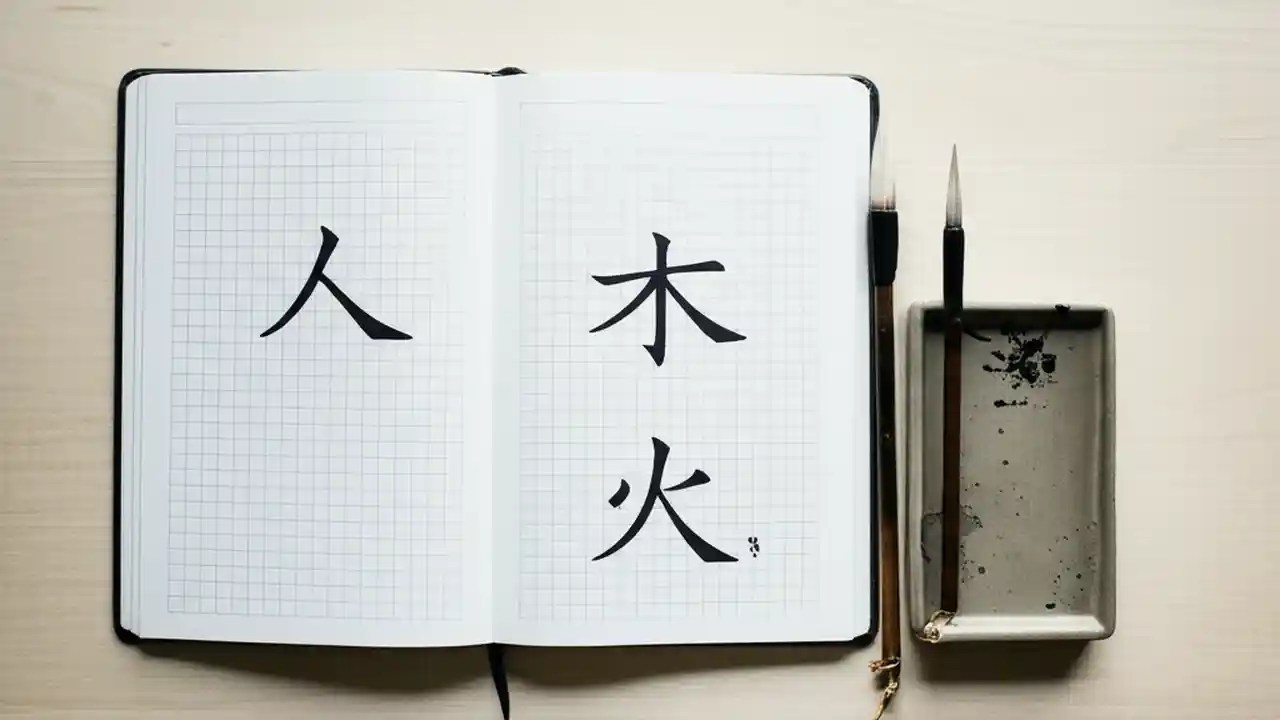 人
木
火